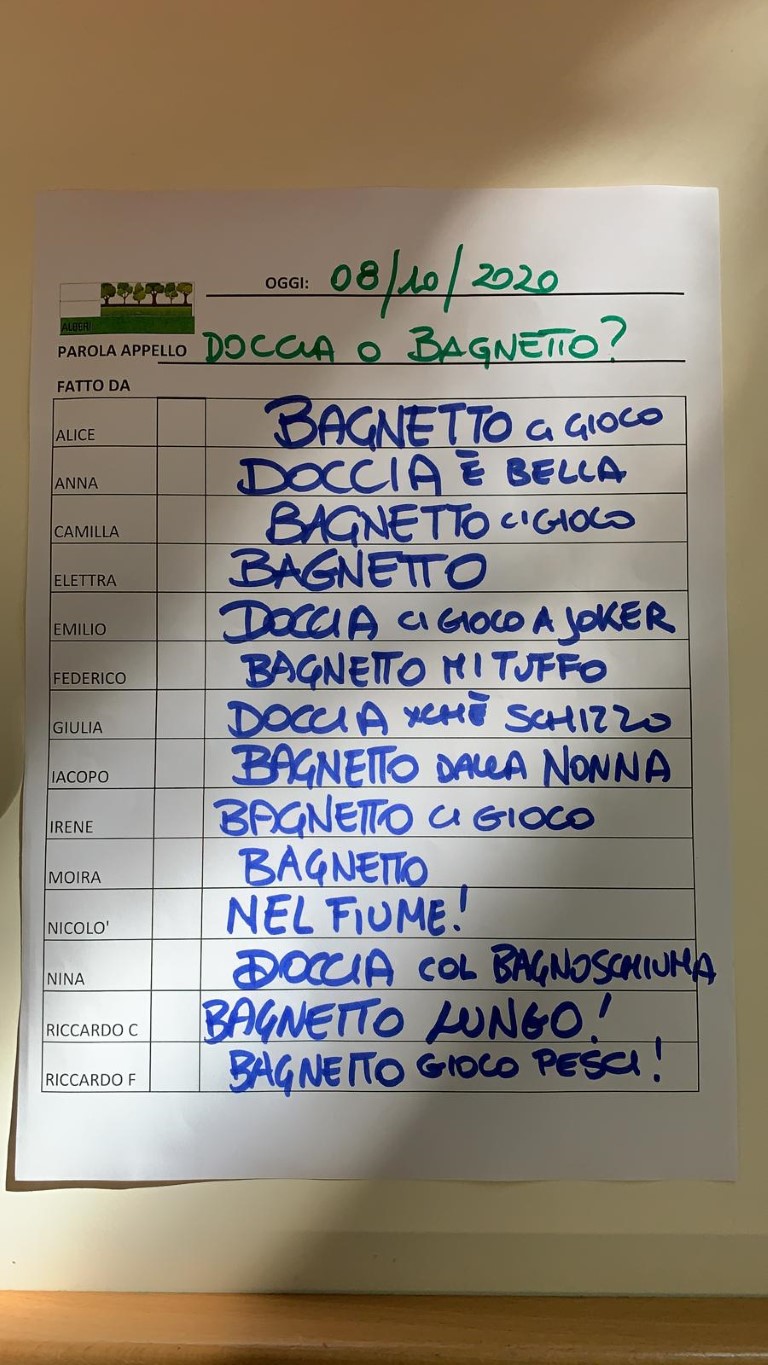 OGGI: 08/10/2020
ALBERI
PAROLA APPELLO DOCCIA O BAGNETTO?
FATTO DA
ALICE BAGNETTO CI GIOCO
ANNA DOCCIA È BELLA
CAMILLA BAGNETTO CI GIOCO
ELETTRA BAGNETTO
EMILIO DOCCIA CI GIOCO A JOKER
FEDERICO BAGNETTO MI TUFFO
GIULIA DOCCIA XCHÈ SCHIZZO
IACOPO BAGNETTO DALLA NONNA
IRENE BAGNETTO CI GIOCO
MOIRA BAGNETTO
NICOLO' NEL FIUME!
NINA DOCCIA COL BAGNOSCHIUMA
RICCARDO C BAGNETTO LUNGO!
RICCARDO F BAGNETTO GIOCO PESCI!